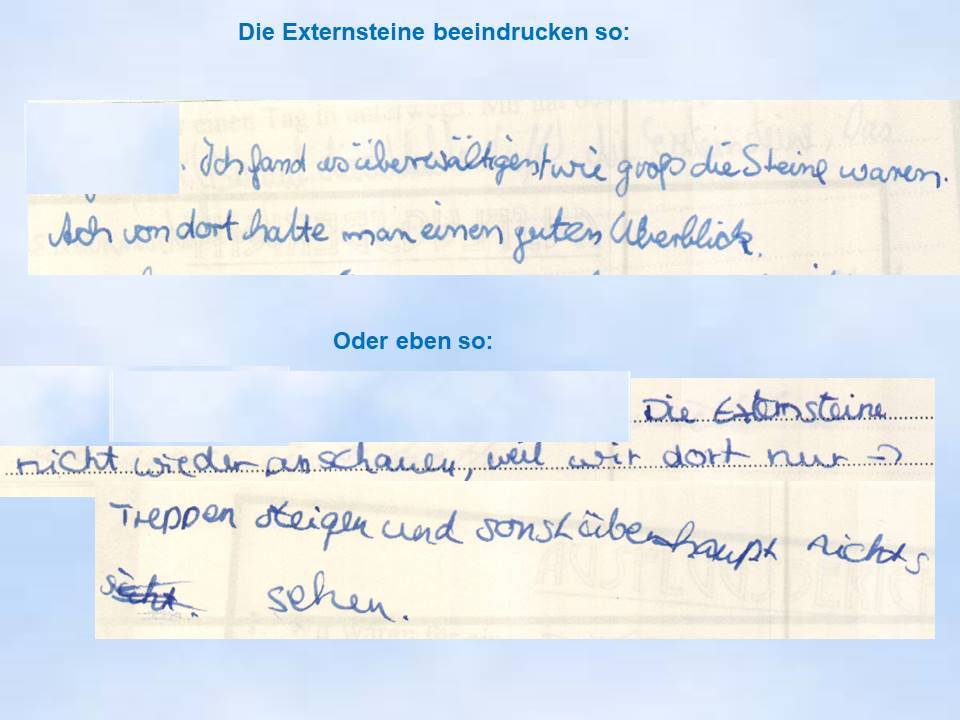 Die Externsteine beeindrucken so:
. Ich fand es überwältigent wie groß die Steine waren.
Ach von dort hatte man einen guten Überblick.
Oder eben so:
Die Externsteine
nicht wieder anschauen, weil wir dort nur →
Treppen steigen und sonst überhaupt nichts
sehen.